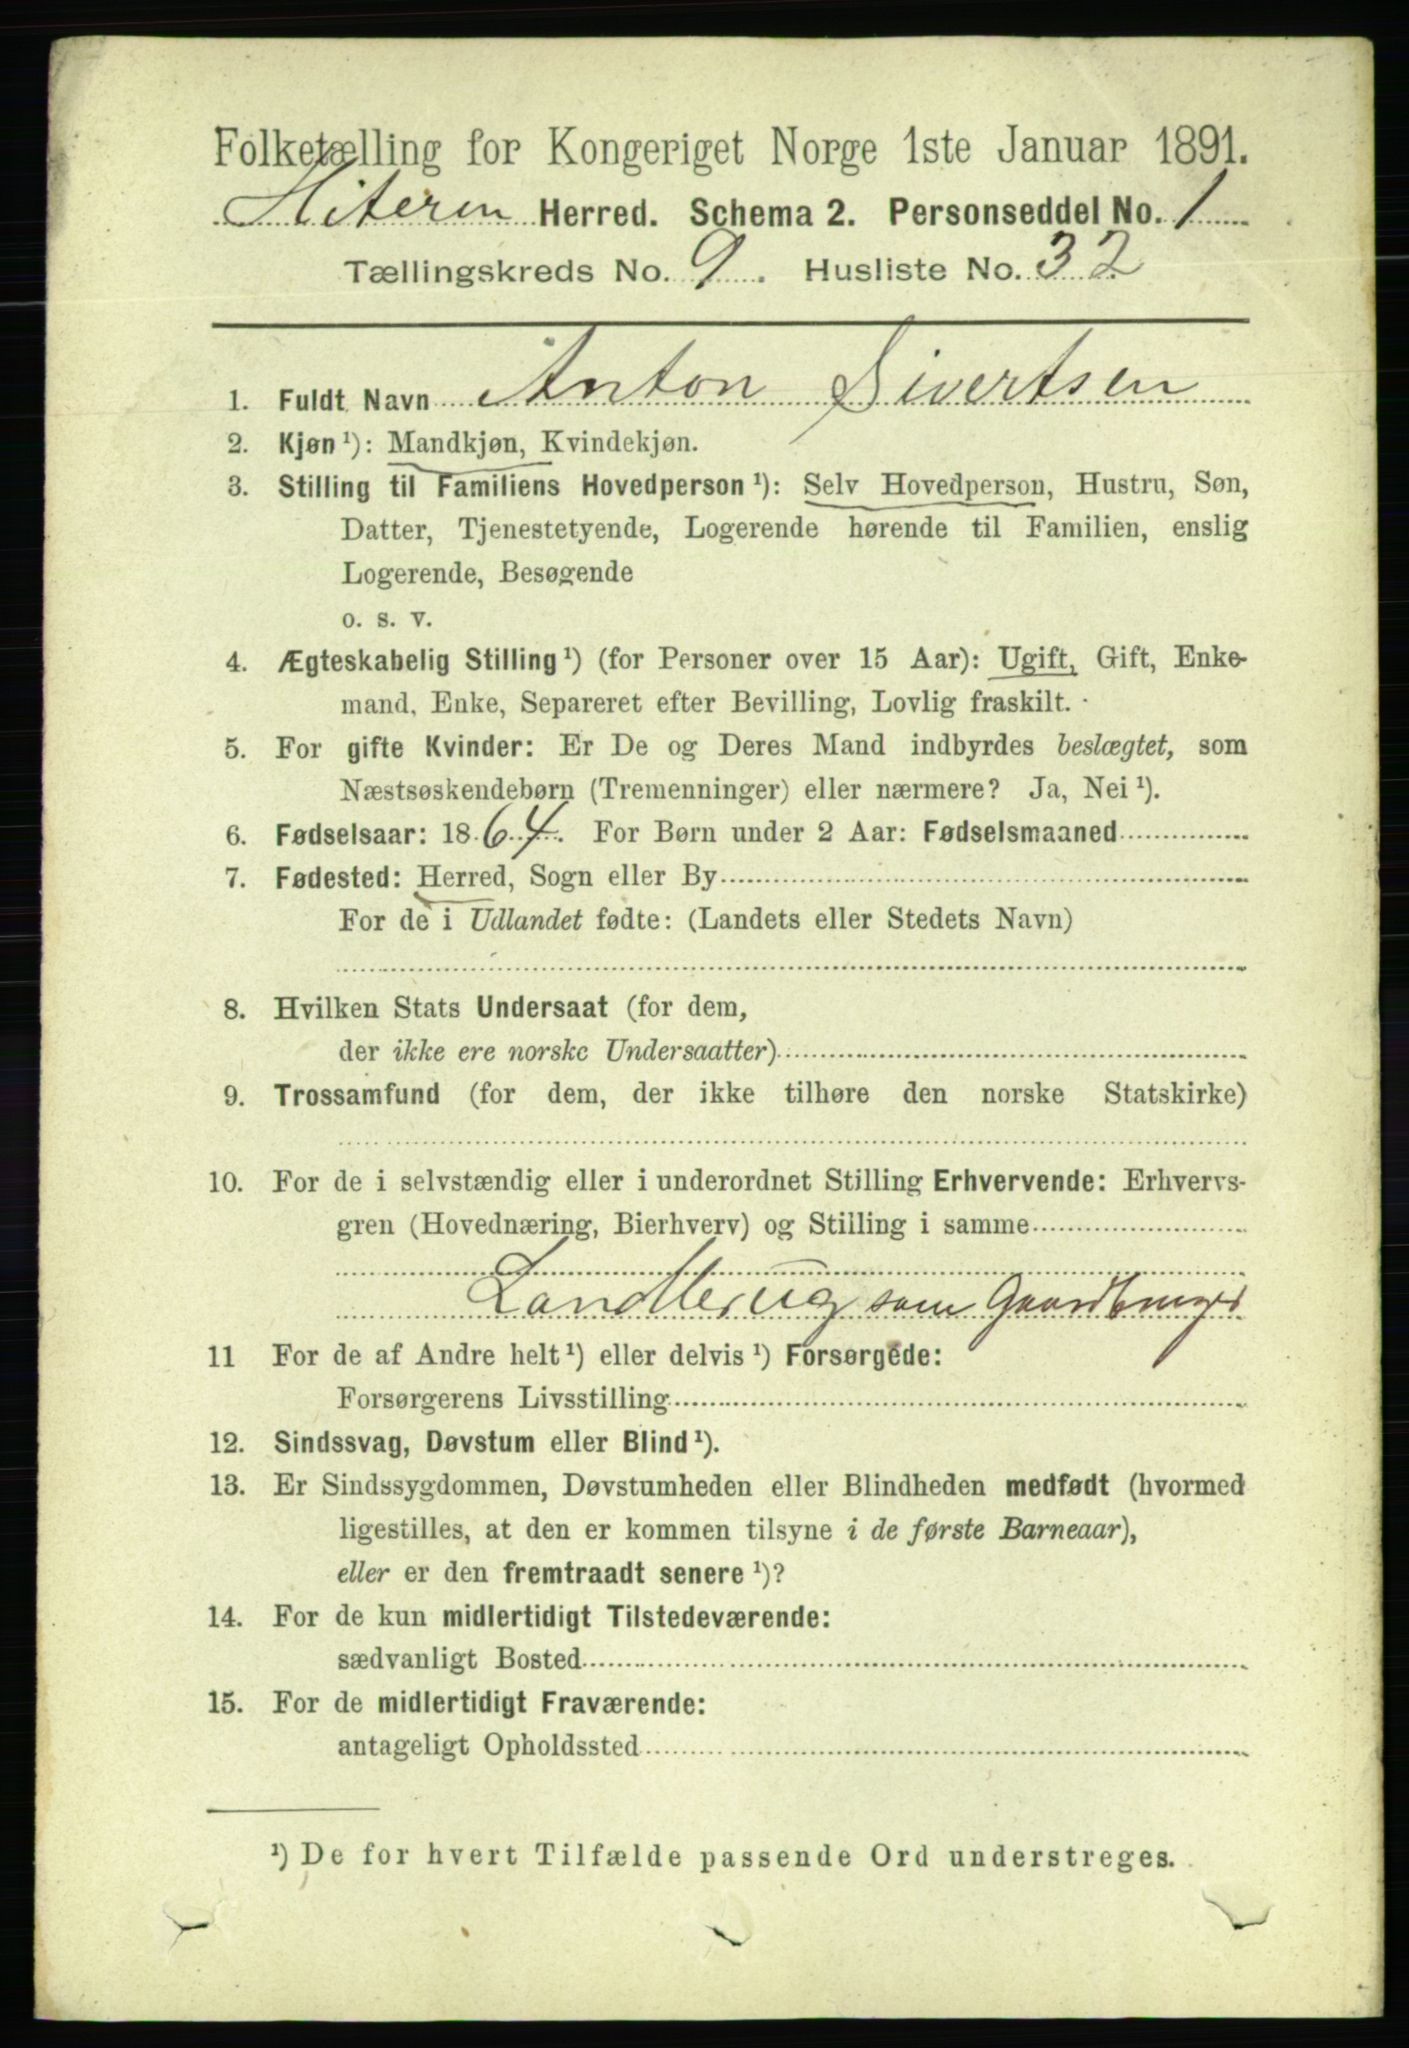 Folketælling for Kongeriget Norge 1ste Januar 1891.
Hiteren Herred. Schema 2. Personseddel No. 1
Tællingskreds No. 9. Husliste No. 32
1. Fuldt Navn Anton Sivertsen
2. Kjøn ¹): Mandkjøn, Kvindekjøn.
3. Stilling til Familiens Hovedperson ¹): Selv Hovedperson, Hustru, Søn,
Datter, Tjenestetyende, Logerende hørende til Familien, enslig
Logerende, Besøgende
o. s. v.
4. Ægteskabelig Stilling ¹) (for Personer over 15 Aar): Ugift, Gift, Enke-
mand, Enke, Separeret efter Bevilling, Lovlig fraskilt.
5. For gifte Kvinder: Er De og Deres Mand indbyrdes beslægtet, som
Næstsøskendebørn (Tremenninger) eller nærmere? Ja, Nei ¹).
6. Fødselsaar: 1864. For Børn under 2 Aar: Fødselsmaaned
7. Fødested: Herred, Sogn eller By
For de i Udlandet fødte: (Landets eller Stedets Navn)
8. Hvilken Stats Undersaat (for dem,
der ikke ere norske Undersaatter)
9. Trossamfund (for dem, der ikke tilhøre den norske Statskirke)
10. For de i selvstændig eller i underordnet Stilling Erhvervende: Erhvervs-
gren (Hovednæring, Bierhverv) og Stilling i samme
Landbrug som Gaardbruger
11 For de af Andre helt ¹) eller delvis ¹) Forsørgede:
Forsørgerens Livsstilling
12. Sindssvag, Døvstum eller Blind ¹).
13. Er Sindssygdommen, Døvstumheden eller Blindheden medfødt (hvormed
ligestilles, at den er kommen tilsyne i de første Barneaar),
eller er den fremtraadt senere ¹)?
14. For de kun midlertidigt Tilstedeværende:
sædvanligt Bosted
15. For de midlertidigt Fraværende:
antageligt Opholdssted
¹) De for hvert Tilfælde passende Ord understreges.